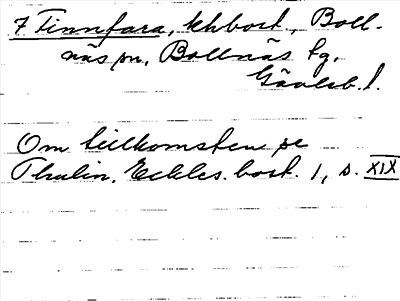 7 Tinnfara, khbost., Boll-
näs pn, Bollnäs fg.
Gävleb. l.
Om tillkomsten se
Thulin, Eckles. bost. 1, s. XIX